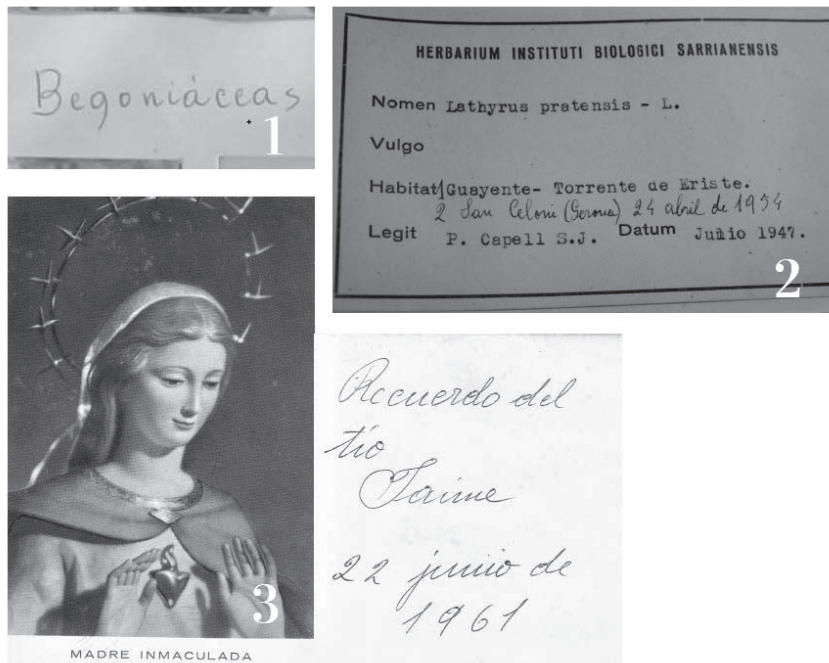 Begoniáceas
1
HERBARIUM INSTITUTI BIOLOGICI SARRIANENSIS
Nomen Lathyrus pratensis - L.
Vulgo
Habitat 1 Guayente- Torrente de Eriste.
2 San Celoni (Gerona) 24 abril de 1954
Legit P. Capell S.J. Datum Junio 1947.
2
3
MADRE INMACULADA
Recuerdo del
tío
Jaime
22 junio de
1961